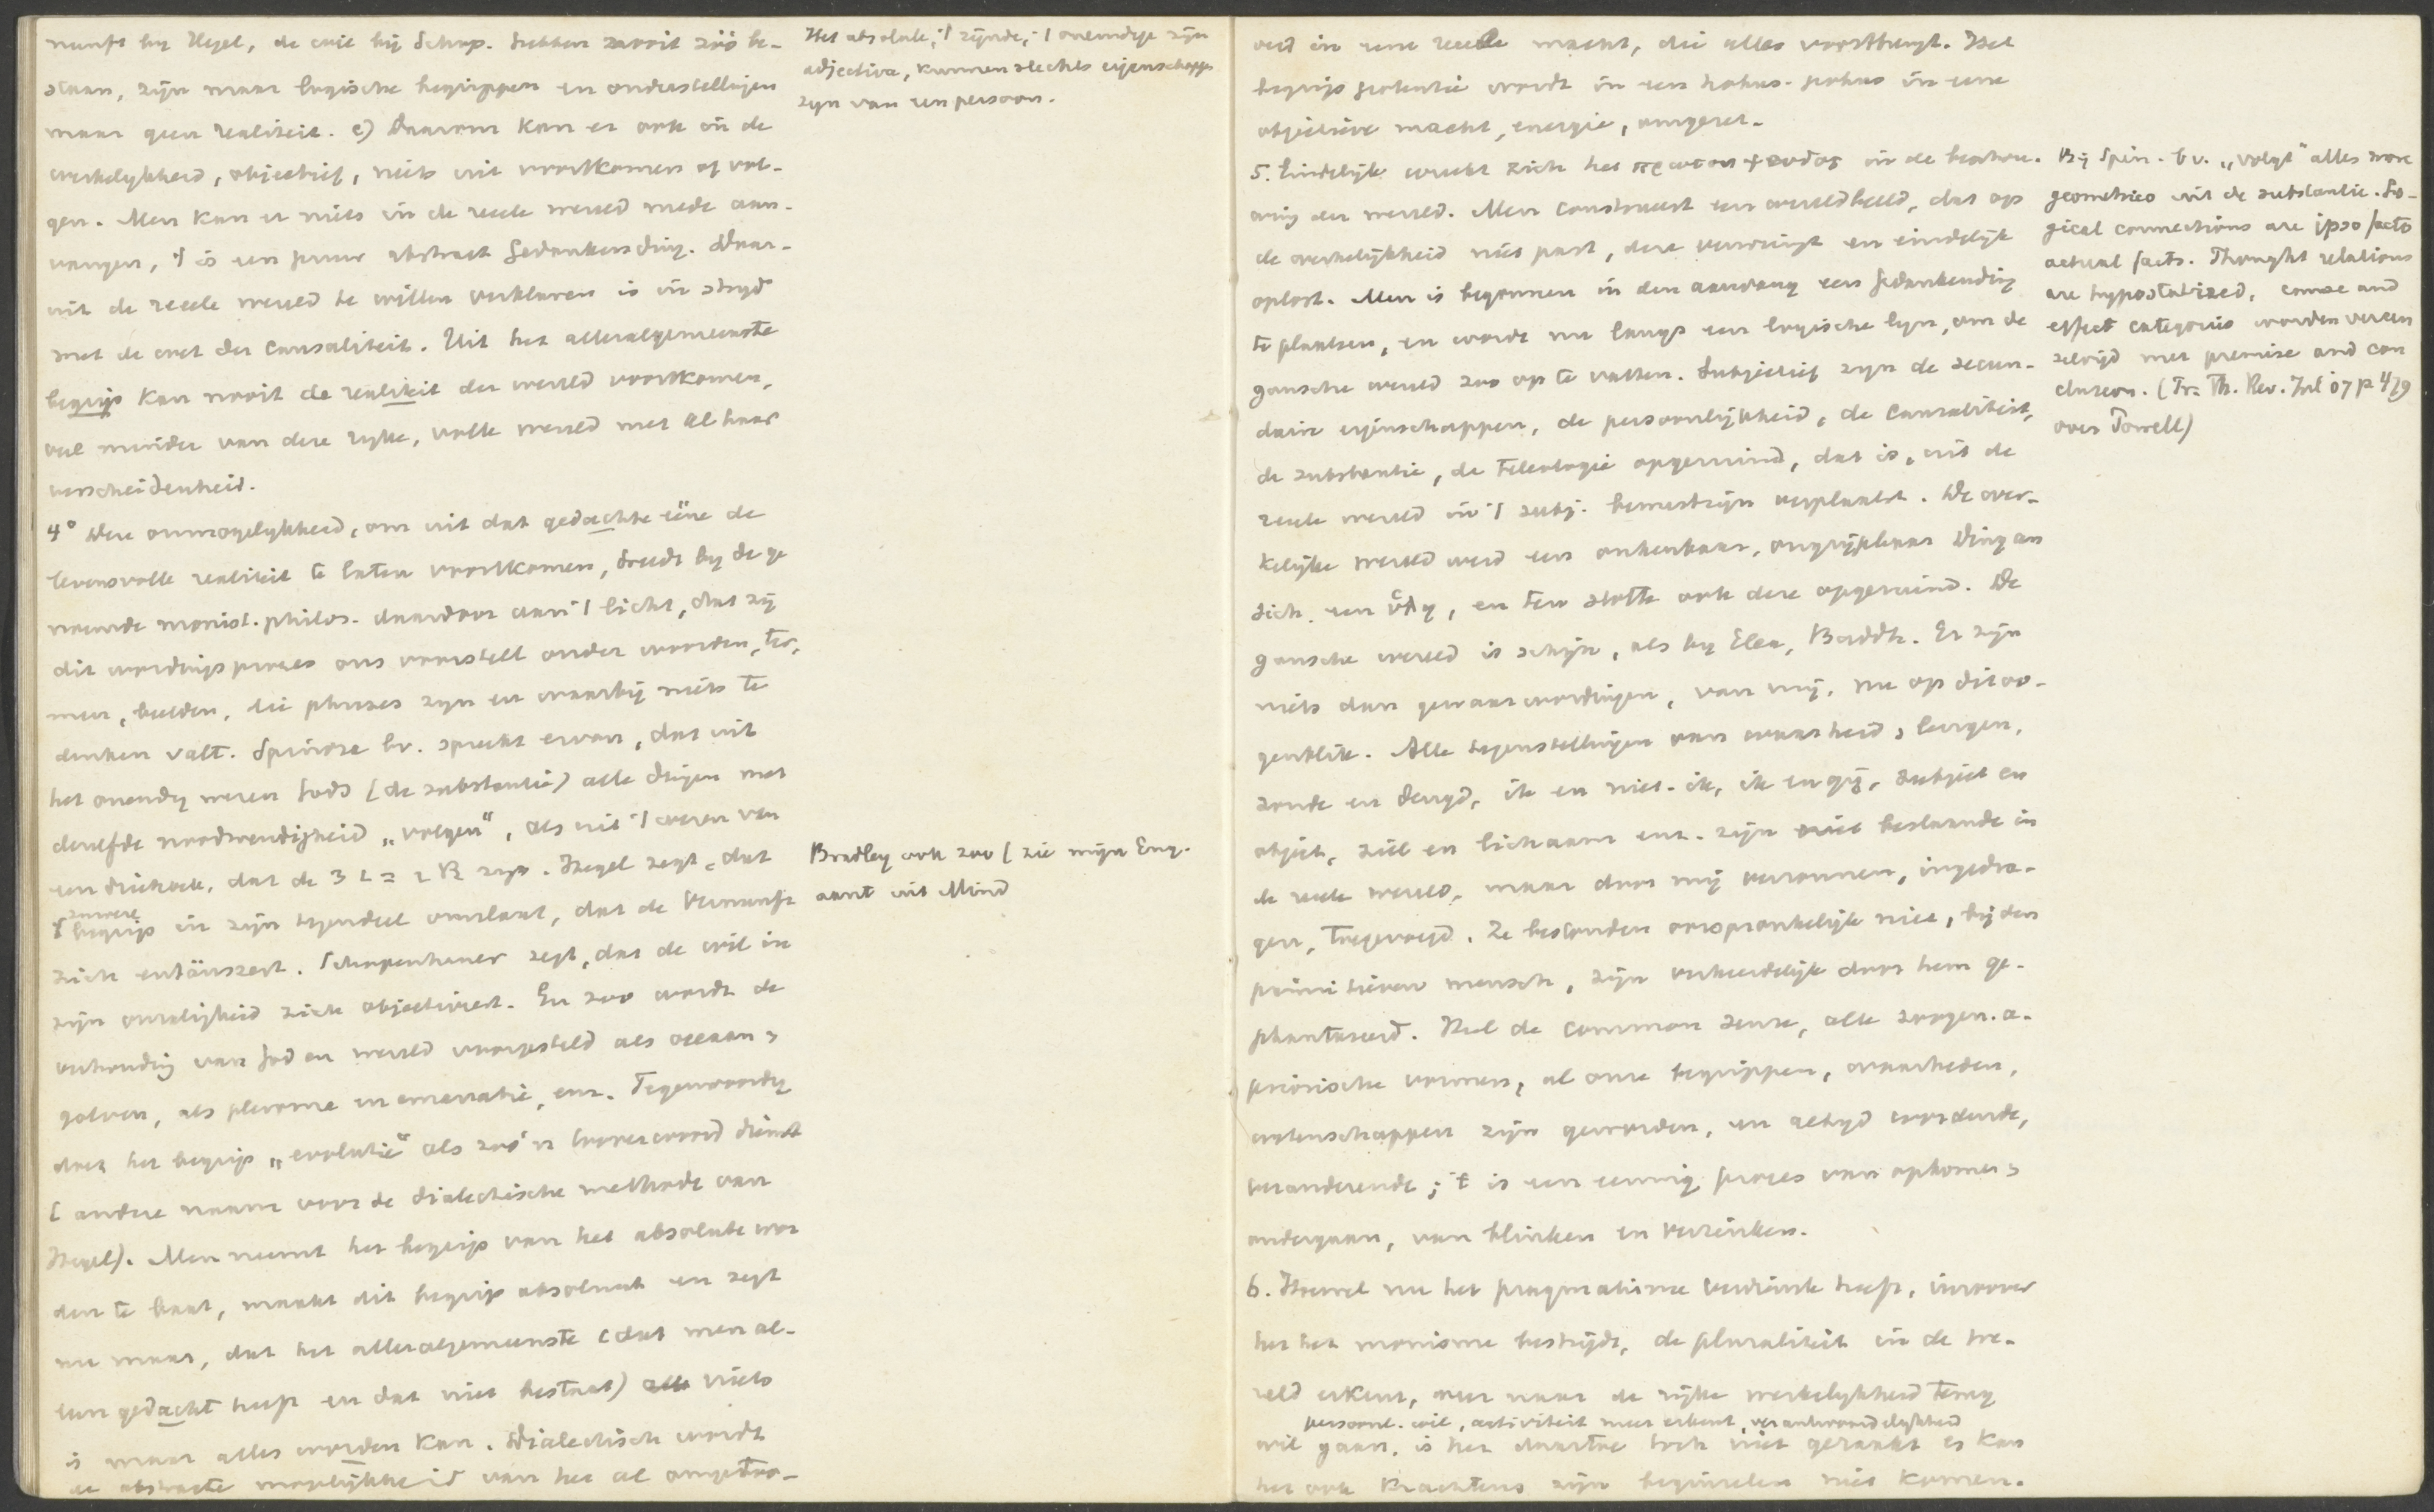 nunft bij Hegel, de wil bij Schop. hebben nooit zóó be-
staan, zijn maar logische begrippen en onderstellingen
maar geen realiteit. c) Daarom kan er ook in de
werkelijkheid, objectief, niets uit voortkomen of vol-
gen. Men kan er niets in de reeele wereld mede aan-
vangen, 't is een puur abstract Gedankending. Daar-
uit de reeele wereld te willen verklaren is in strijd
met de wet der causaliteit. Uit het alleralgemeenste
begrip kan nooit de realiteit der wereld voortkomen,
veel minder van deze rijke, volle wereld met al haar
verscheidenheid.
4° Deze onmogelijkheid, om uit dat gedachte ééne de
levensvolle realiteit te laten voortkomen, treedt bij de ge
noemde monist. philos. daardoor aan 't licht, dat zij
dit wordingsproces ons voorstelt onder woorden, ter-
men, beelden, die phrases zijn en waarbij niets te
denken valt. Spinoza bv. spreekt ervan, dat uit
het oneindig wezen Gods (de substantie) alle dingen met
dezelfde noodwendigheid „volgen", als uit 't wezen van
een driehoek, dat de 3 L = 2 R zijn. Hegel zegt, dat
't zuivere begrip in zijn tegendeel omslaat, dat de Vernunft
zich entäuszert. Schopenhauer zegt, dat de wil in
zijn onzaligheid zich objectiveert. En zoo wordt de
verhouding van God en wereld voorgesteld als oceaan &
golven, als pleroma en emanatie, enz. Tegenwoordig
doet het begrip „evolutie" als zoo'n tooverwoord dienst
(andere naam voor de dialectische methode van
Hegel). Men neemt het begrip van het absolute wor
den te baat, maakt dit begrip absoluut en zegt
nu maar, dat het alleralgemeenste (dat men al-
leen gedacht heeft en dat niet bestaat) niets
is maar alles worden kan. Dialectisch wordt
de abstracte mogelijkheid van het al omgetoo-
Het absolute, 't zijnde, 't oneindige zijn
adjectiva, kunnen slechts eigenschapp.
zijn van een persoon.
Bradley ook zoo (zie mijn Eng.
aant uit Mind
verd in eene reeele macht, die alles voortbrengt. Het
begrip potentie wordt in een hokus-pokus in eene
objectieve macht, energie, omgezet.
5. Eindelijk wreekt zich het πρωτον ψευδος in de beschou-
wing der wereld. Men construeert een wereldbeeld, dat op
de werkelijkheid niet past, deze verwringt en eindelijk
oplost. Men is begonnen in den aanvang een Gedankending
te plaatsen, en wordt nu langs een logische lijn, om de
gansche wereld zoo op te vatten. Subjectief zijn de secun-
daire eigenschappen, de persoonlijkheid, de causaliteit,
de substantie, de teleologie opgeruimd, dat is, uit de
reeele wereld in 't subj. bewustzijn verplaatst. De wer-
kelijke wereld werd een onkenbaar, ongrijpbaar Ding an
sich, een ὕλη, en ten slotte ook deze opgeruimd. De
gansche wereld is schijn, als bij Elea, Buddh. Er zijn
niets dan gewaarwordingen, van mij, nu op dit oo-
genblik. Alle tegenstellingen van waarheid & leugen,
zonde en deugd, ik en niet-ik, ik en gij, subject en
object, ziel en lichaam enz. zijn niet bestaande in
de reeele wereld, maar door mij verzonnen, ingedra-
gen, toegevoegd. Ze bestonden oorspronkelijk niet, bij den
primitieven mensch, zijn verkeerdelijk door hem ge-
phantaseerd. Heel de common sense, alle zoogen. a-
priorische vormen, al onze begrippen, waarheden,
wetenschappen zijn geworden, en altijd wordende,
veranderende; 't is een eeuwig proces van opkomen &
ondergaan, van blinken en verzinken.
6. Hoewel nu het pragmatisme verdienste heeft, inzoover
het het monisme bestrijdt, de pluraliteit in de we-
reld erkent, weer naar de rijke werkelijkheid terug
persoonl. wil, activiteit meer erkent, verantwoordelijkheid
wil gaan, is het daartoe toch niet geraakt & kan
het ook krachtens zijn beginselen niet komen.
Bij Spin. bv. „volgt" alles more
geometrico uit de substantie. Lo-
gical connections are ipso facto
actual facts. Thought relations
are hypostatized, cause and
effect categories worden vereen
zelvigd met premise and con
clusion. (Pr. Th. Rev. Jul '07 p 479
over Powell)